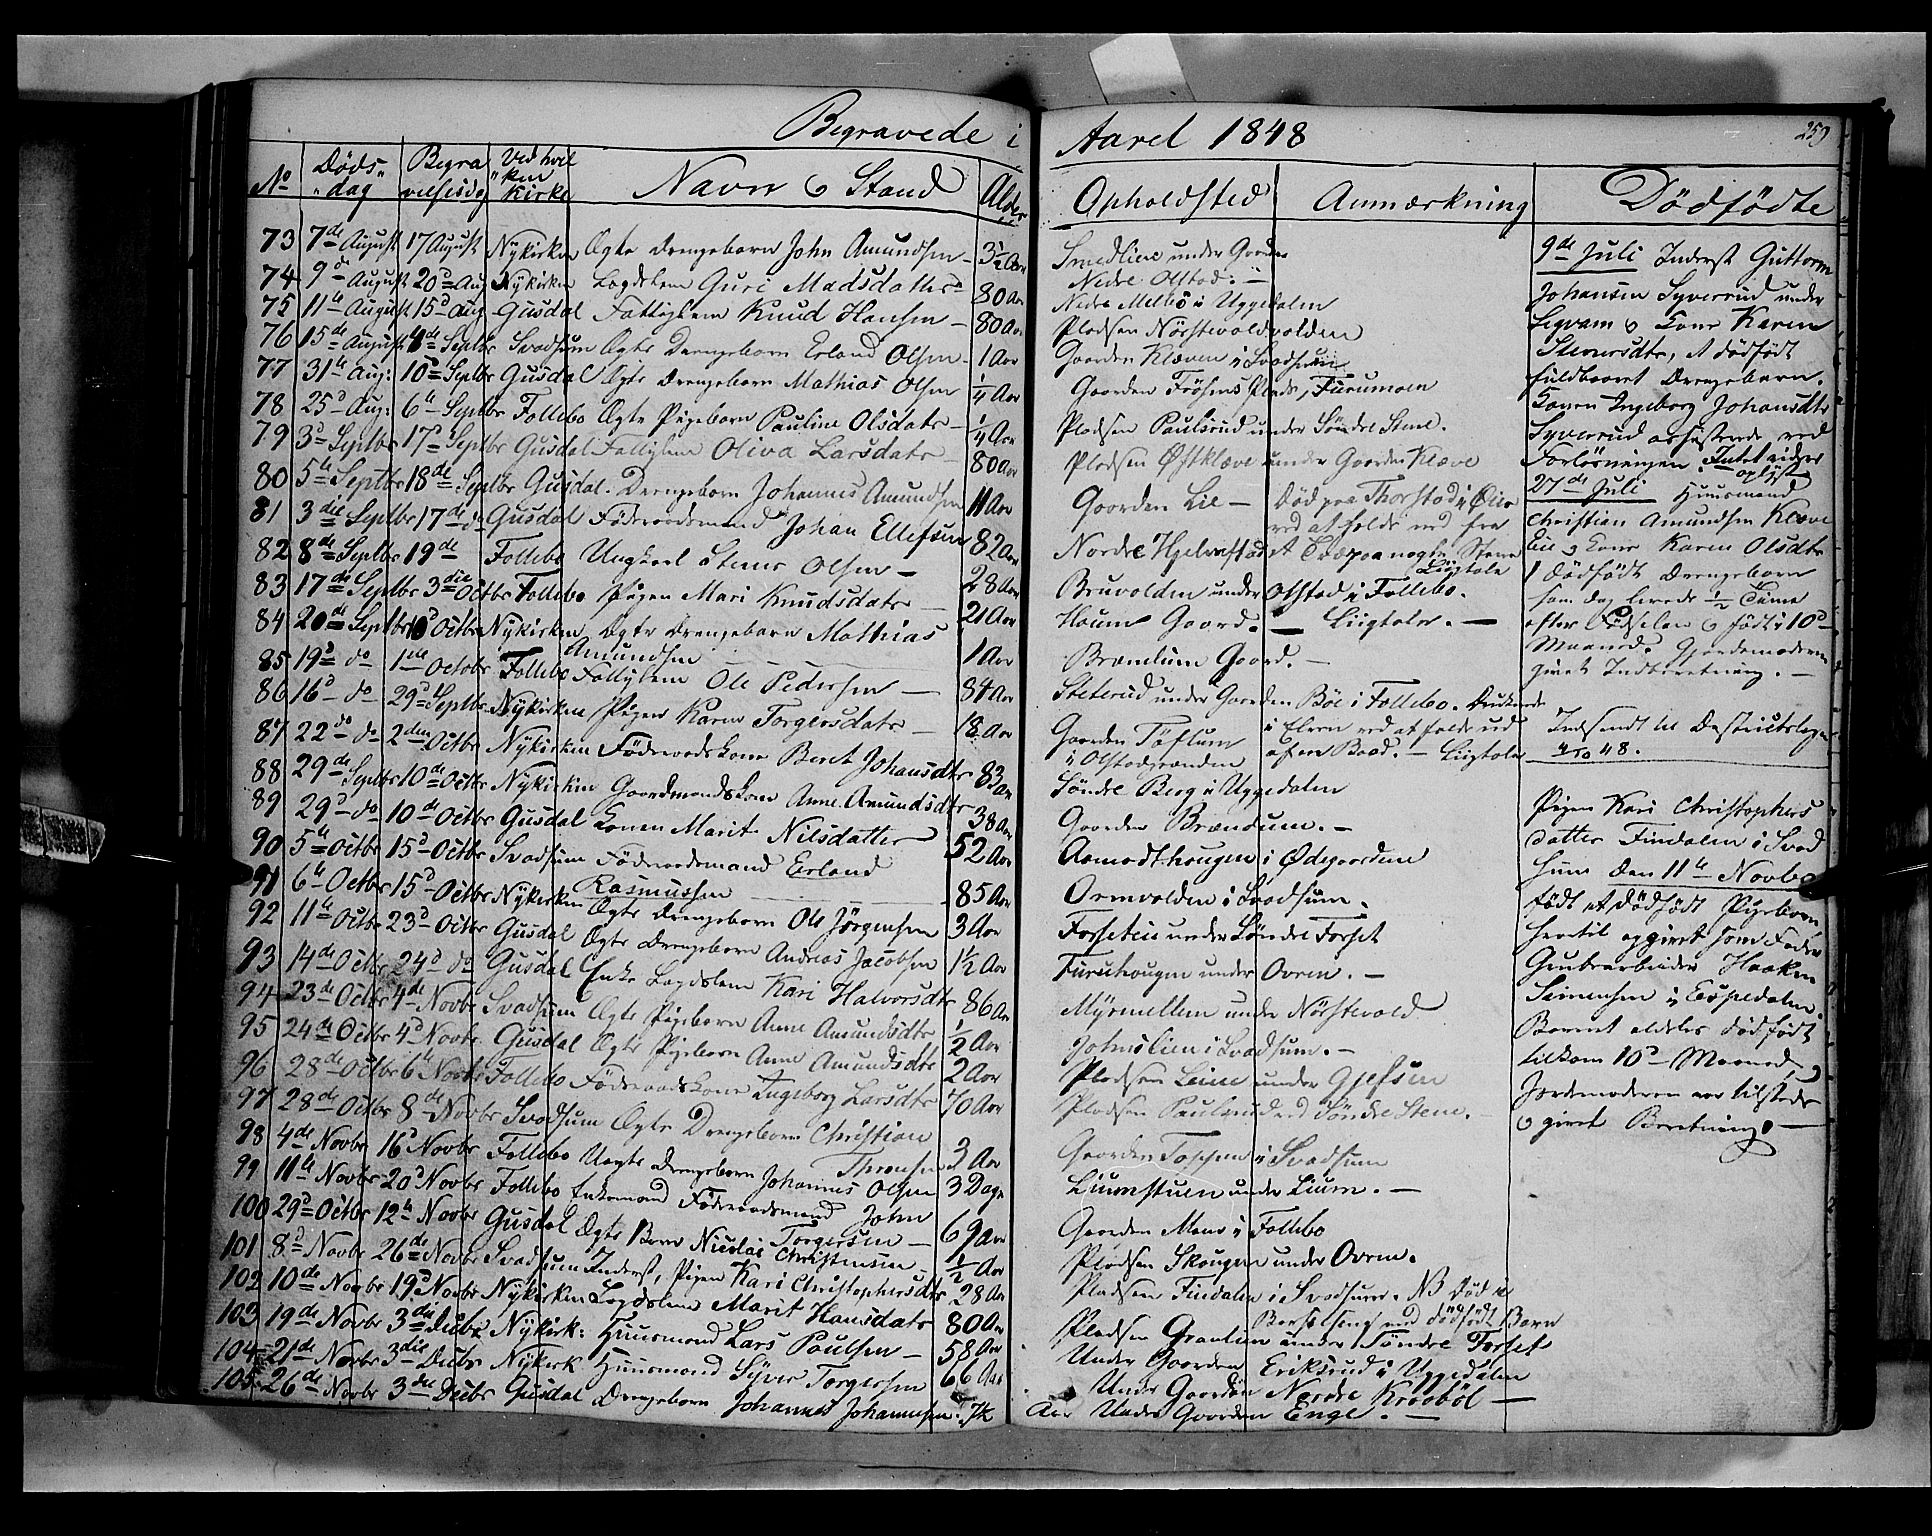 Begravede i Aaret 1848
259
No Døds- dag Begra velsesdag Ved hvil ken Kirke Navn & Stand Alder Opholdsted Anmærkning Dödfödte
73 7de August 17 August Nykirken Ægte Drengebarn John Amundsen 3½ Aar Smedlien under Gaarden
74 9d August 20d Aug Nykirken Lægdslem Guri Madsdatter 80 Aar Nedre Olstad
75 11te August 15d Aug Gusdal Fattiglem Knud Hansen 80 Aar Nedre Melbö i Uggedalen
76 15de August 4de Septbr Svadsum Ægte Drengebarn Erland Olsen 1 Aar Pladsen Nörstevoldvolden
77 31te Aug: 10d Septbr Gusdal Ægte Drengebarn Mathias Olsen ¼ Aar Gaarden Klæven i Svadsum
78 25d Aug: 6te Septbr Follebo Ægte Pigebarn Pauline Olsdatr ¼ Aar Gaarden Frösens Plads, Furumoen
79 3d Septbr 17d Septbr Gusdal Fattiglem Oliva Larsdatr 80 Aar Pladsen Paulsrud under Söndre Stene.
80 5te Septbr 18de Septbr Gusdal Drengebarn Johannes Amundsen 11 Aar Pladsen Østklæve under Gaarden Klæve
81 3die Septbr 17de do Gusdal Föderaadsmand Johan Ellefsen 82 Aar Gaarden Lie Död paa Thorstad i Øier
ved at falde ned fra
82 8de Septbr 19de Follebo Ungkarl Stener Olsen 28 Aar Nordre Hjelmstad et Træ paa nogle Stene
Liigtale
83 17de Septbr 3die Octbr Follebo Pigen Mari Knudsdatr 21 Aar Bruvolden under Olstad i Follebo.
84 20de Septbr 10d Octbr Nykirken Ægte Drengebarn Mathias
Amundsen 1 Aar Haum Gaard. Liigtale.
85 19d do 1ste October Follebo Fattiglem Ole Pedersen 84 Aar Brænlum Gaard.
86 16d do 29d Septbr Nykirken Pigen Karen Torgersdatr 18 Aar Steterud under Gaarden Böe i Follebo. Druknede
i Elven ved at falde ud
af en Baad. Liigtale
87 22de do 2den Octbr Nykirken Föderaadskone Berit Johansdtr 83 Aar Gaarden Töflum
i Olstadgrenden
88 29de Septbr 10de Octbr Nykirken Gaardmandskone Anne Amundsdtr 38 Aar Söndre Berg i Uggedalen
89 29d do 10de Octbr Gusdal Konen Marit Nilsdatter 52 Aar Gaarden Brændum.
90 5te Octbr 15d Octbr Svadsum Föderaadsmand Erland
Rasmussen 85 Aar Aamodthaugen i Ødegaarden
91 6te Octbr 15d Octbr Nykirken Ægte Drengebarn Ole Jörgensen 3 Aar Ormvolden i Svadsum.
92 11te Octbr 23d Octbr Gusdal Ægte Drengebarn Andreas Jacobsen 1½ Aar Forseteie under Söndre Forset
93 14de Octbr 24d do Gusdal Enke Lægdslem Kari Halvorsdtr 86 Aar Furuhaugen under Ovren.
94 23de Octbr 4de Novbr Svadsum Ægte Pigebarn Anne Amundsdtr ½ Aar Myrmellem under Nörstevold
95 24de Octbr 4d Novbr Gusdal Ægte Pigebarn Anne Amundsdtr 2 Aar Johnslien i Svadsum.
96 28de Octbr 6te Novbr Follebo Föderaadskone Ingeborg Larsdtr 70 Aar Pladsen Leine under Gjefsen
97 28de Octbr 8de Novbr Svadsum Ægte Drengebarn Christian
Thronsen 3 Aar Pladsen Paulsrud ved Söndre Stene.
98 4de Novbr 16d Novbr Follebo Uægte Drengebarn Johannes Olsen 3 Dage Gaarden Toppen i Svadsum
99 11te Novbr 20d Novbr Follebo Enkemand Föderaadsmand John
Torgersen 69 Aar Liumstuen under Lium.
100 29d Octbr 12te Novbr Gusdal Ægte Barn Nicolai Christensen ½ Aar Gaarden Moen i Follebo
101 8d Novbr 26de Novbr Svadsum Inderst, Pigen Kari Christophersdtr 28 Aar Pladsen Skougen under Ovren.
102 10de Novbr 19d Novbr Nykirken Lægdslem Marit Hansdatr 80 Aar Pladsen Findalen i Svadsum. NB Död i
Barselseng med dödfödt Barn
103 19de Novbr 3die Decbr Nykirk: Huusmand Lars Paulsen 58 Aar Pladsen Granlien under Söndre Forset
104 21de Novbr 3die Decbr Nykirk Huusmand Syver Torgersen 66 Aar Under Gaarden Eriksrud i Uggedalen
105 26de Novbr 3die Decbr Gusdal Drengebarn Johannes Johannesen. 7¼ Aar Under Gaarden Nordre Kraaböl
Under Gaarden Enge.
9de Juli Inderst Guttorm
Johansen Syverrud under
Segvam & Kone Karen
Stenersdtr, et dödfödt
fuldbaaret Drengebarn.
Konen Ingeborg Johansdtr
Syverrud assisterede ved
Forlösningen Intet videre
oplyst
27de Juli Huusmand
Christian Amundsen Klæve
Eie & Kone Karen Olsdtr
1 dödfödt Drengebarn
som dog levede ½ Time
efter Födselen & födt i 10d
Maaned. Gjordemoderen
givet Indberetning.
Indsendt til Destrictslægen
4/10 48.
Pigen Kari Christophers
datter Findalen i Svad
sum den 11te Novbr
födt et dödfödt Pigebarn
hertil opgivet som Fader
Grubearbeider Haaken
Simensen i Espedalen.
Barnet aldeles dödfödt
tilkom 10d Maaned
Jordemoderen var tilstede
& givet Beretning.